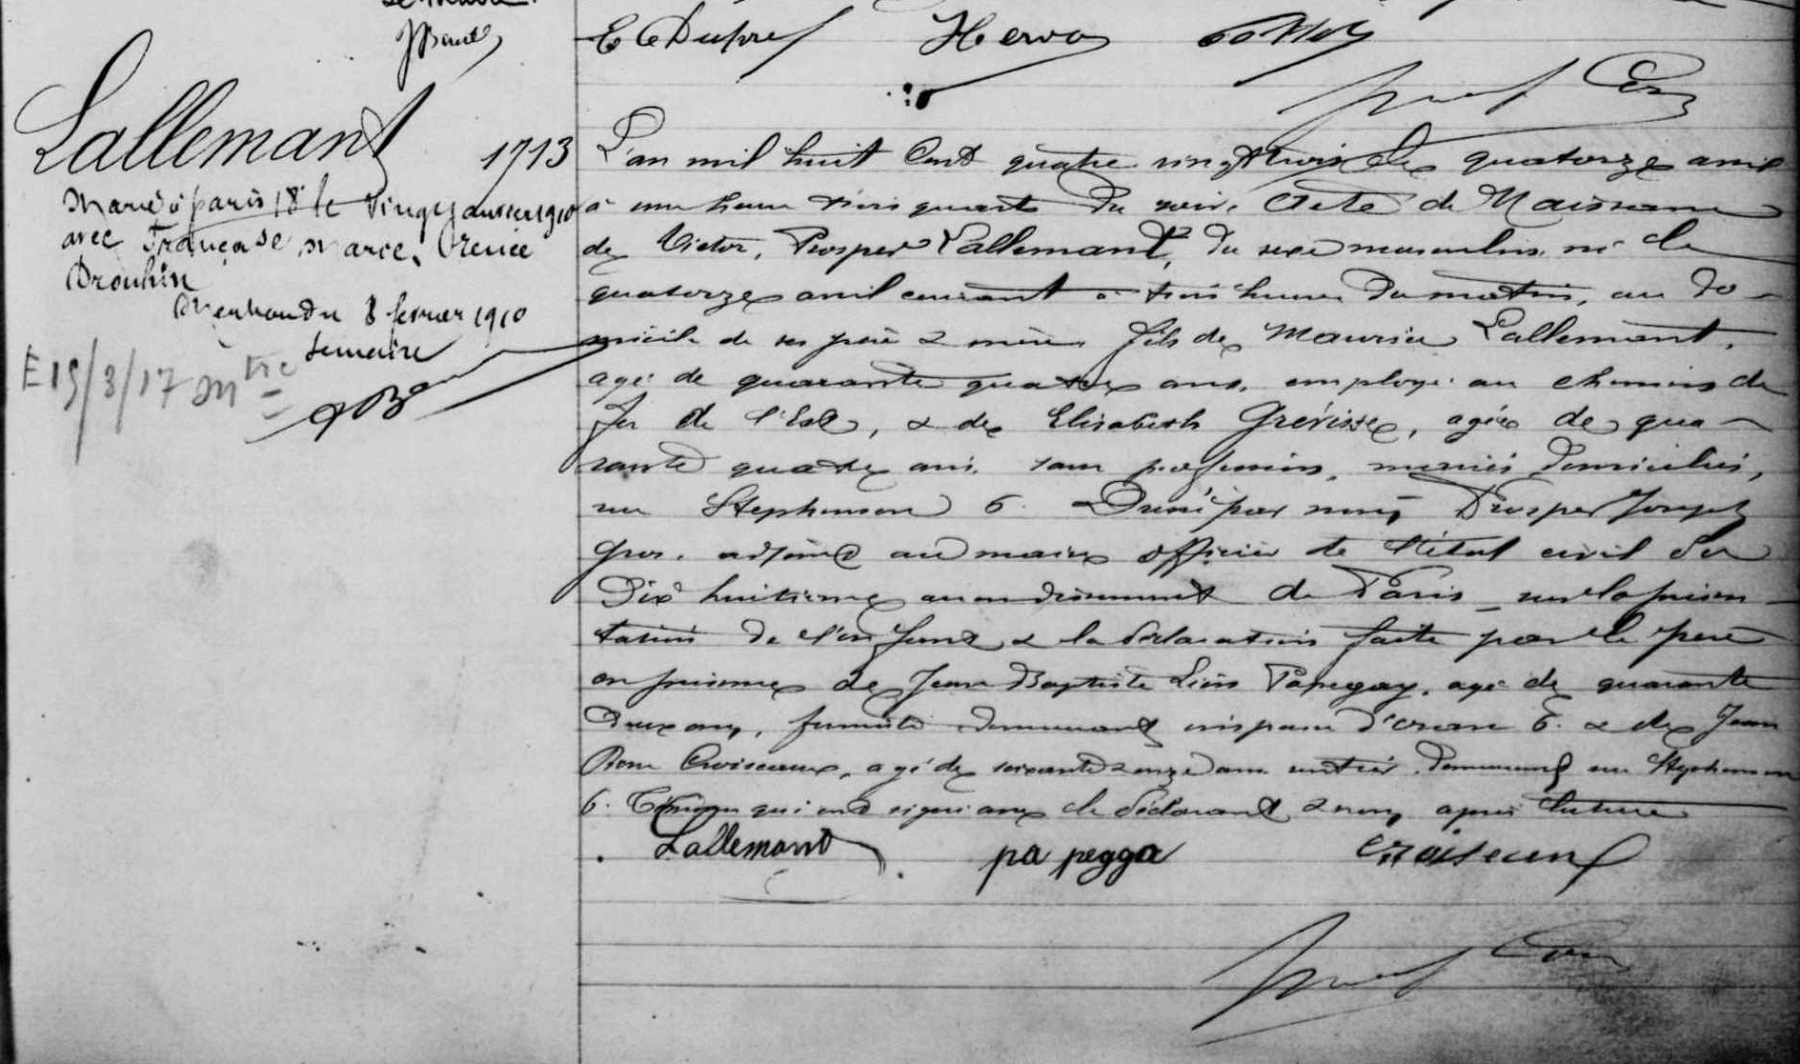 Le Maire
E Dupré Herva
Lallemant 1713
Marié à paris 18e le vingt janvier 1910
avec Françoise Marie, Irénée
Drouhin
Mention du 8 fevrier 1910
Le maire
E 19/3/17 Mtre
L'an mil huit Cent quatre vingt trois le quatorze avril
à une heure trois quarts du soir. Acte de Naissance
de Victor, Prosper Lallemant, du sexe masculin, né le
quatorze avril courant à trois heures du matin, au do-
micile de ses père & mère, fils de Maurice Lallemant,
agé de quarante quatre ans, employé au chemin de
fer de l'Est, & de Elisabeth Grévisse, agée de qua-
rante quatre ans, sans profession, mariés domiciliés,
rue Stephenson 6. Dressé par nous, Prosper Joseph
Gros, adjoint au maire officier de l'état civil du
Dix huitième arrondissement de Paris sur la présen-
tation de l'enfant & la déclaration faite par le père
en présence de Jean Baptiste Papegay, agé de quarante
deux ans, demeurant impasse 6. & de Jean
Croiseaux, agé de soixante onze ans rentier, demeurant rue Stephenson
6. Témoins qui ont signé avec le déclarant & nous après lecture
Lallemant pa pegga Croiseaux